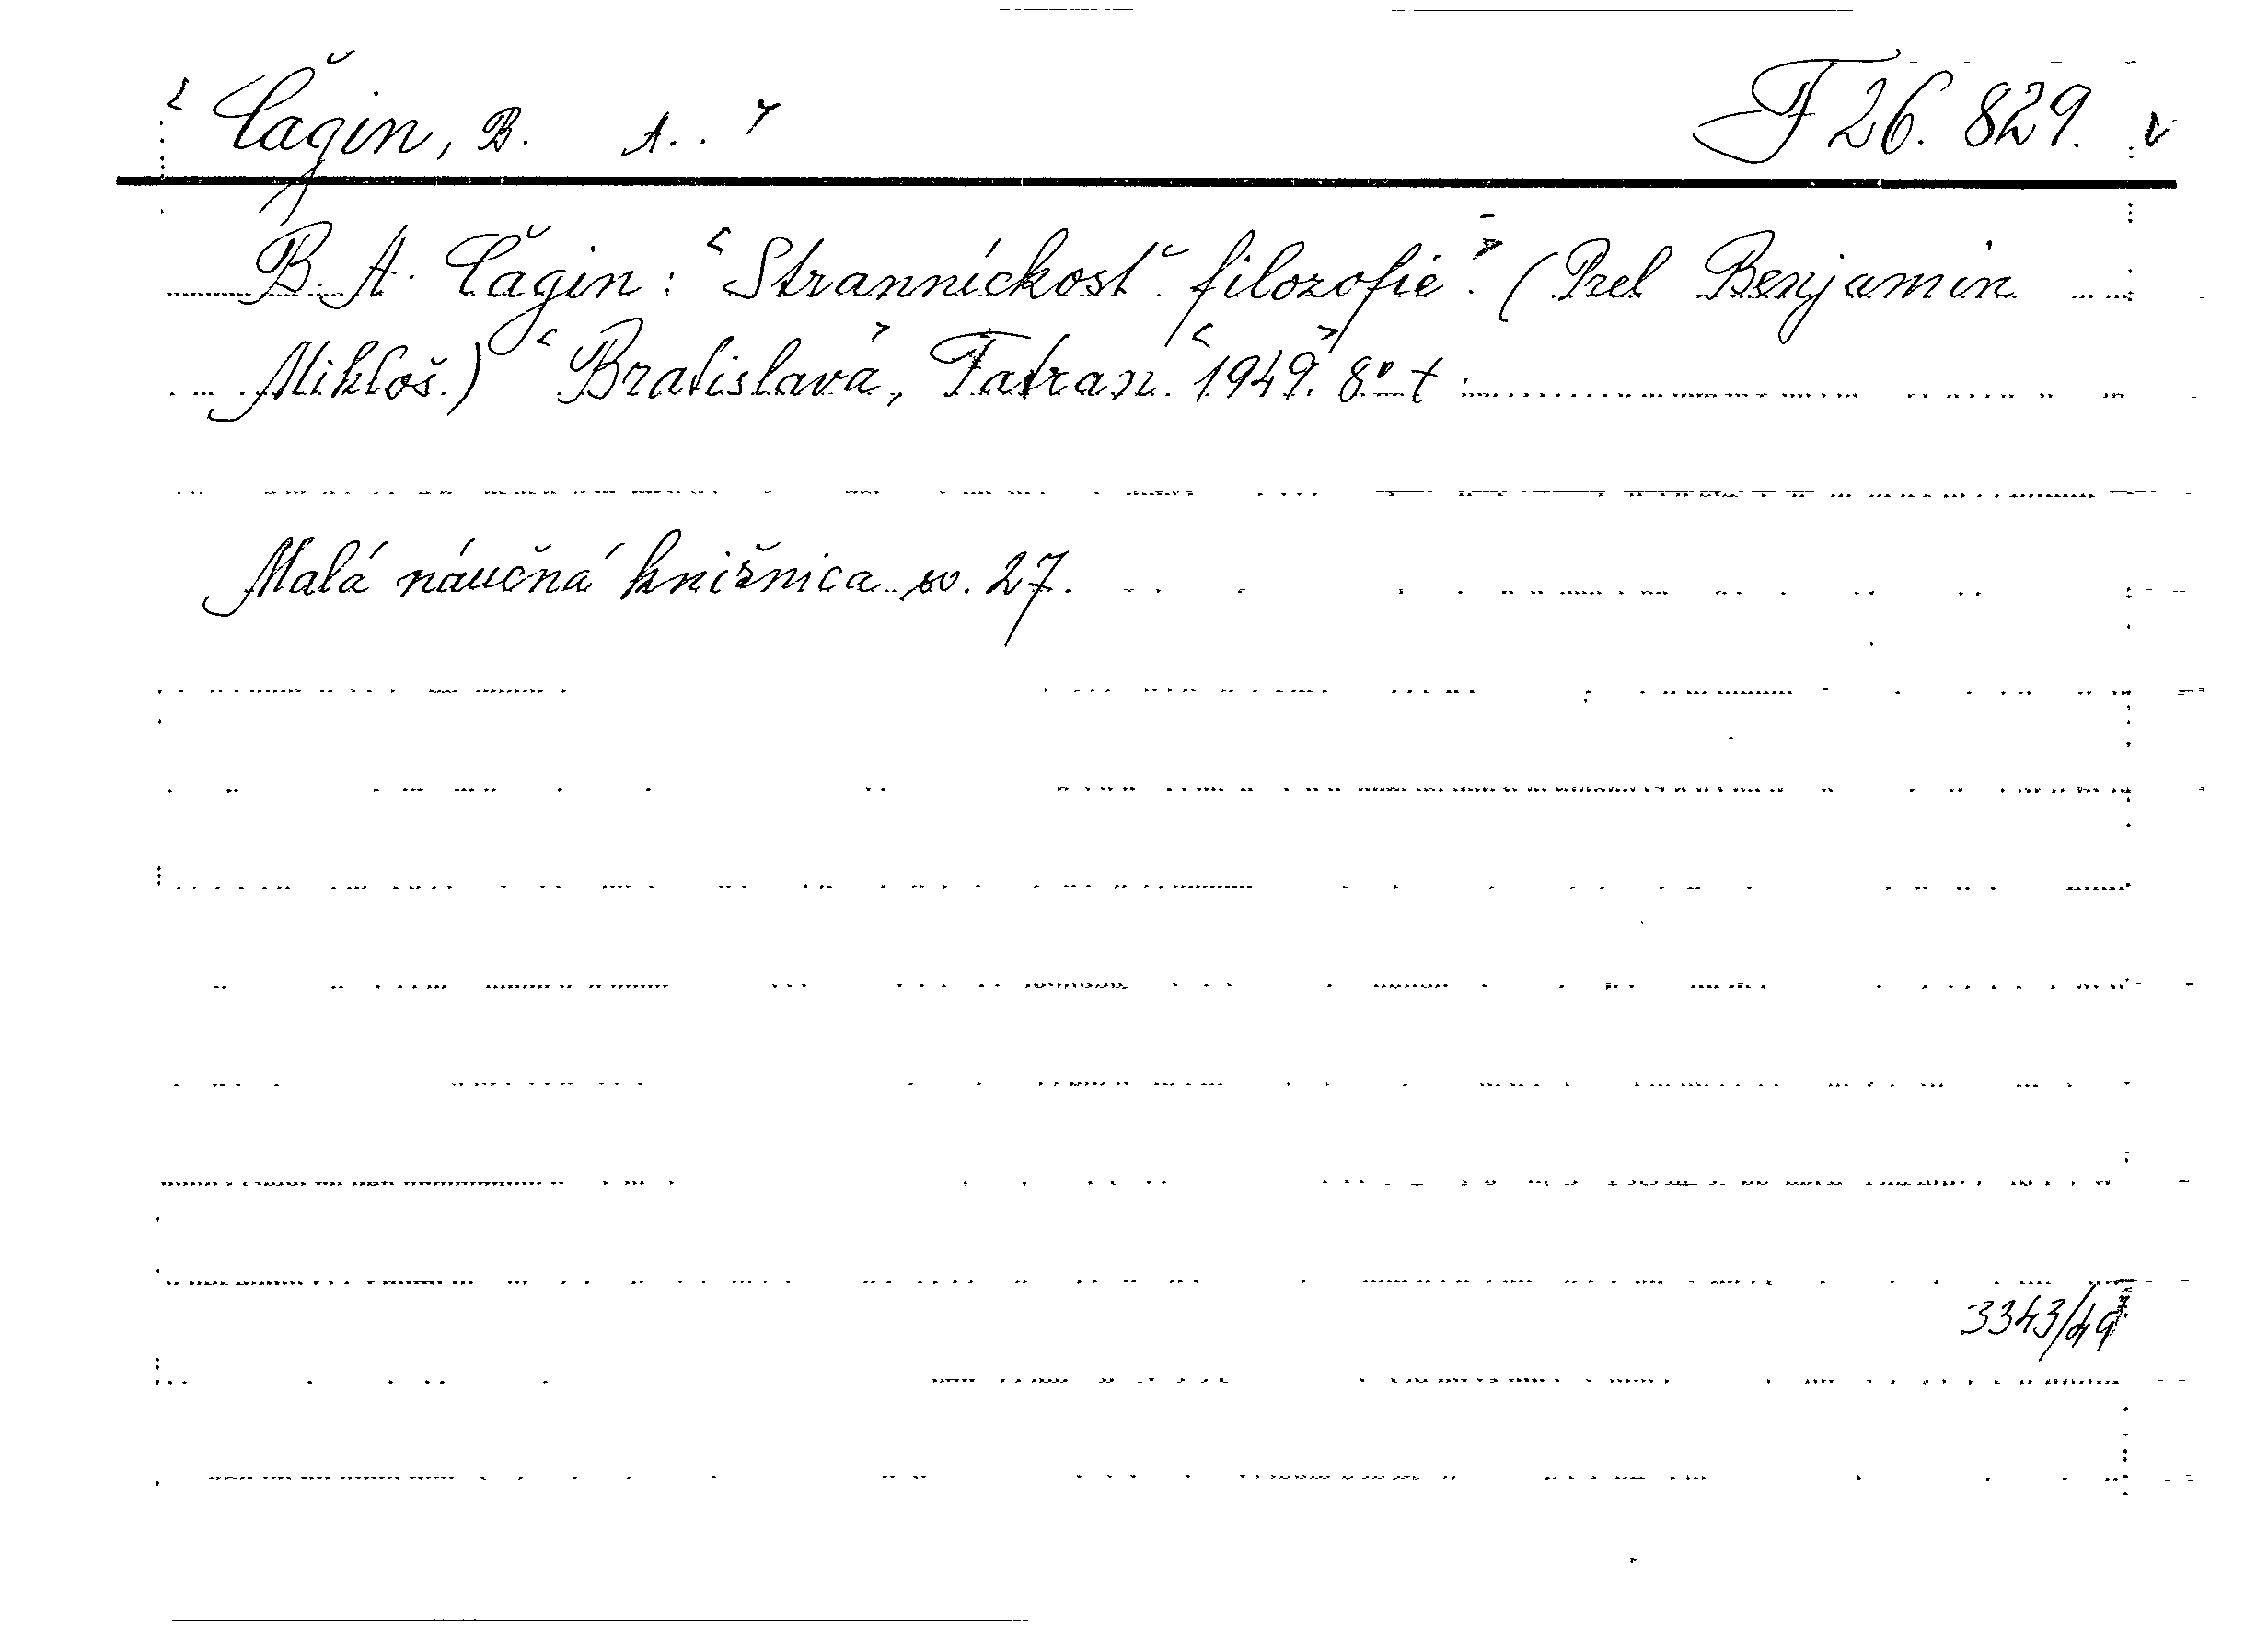 Čagin, B. A.. F 26. 829.
B. A. Čagin: Stranníckosť filozofie. (Prel Benjamin
Mikloš.) Bratislava, Tatran 1949. 8° t.
Malá náučná knižnica sv. 27.
3343/49